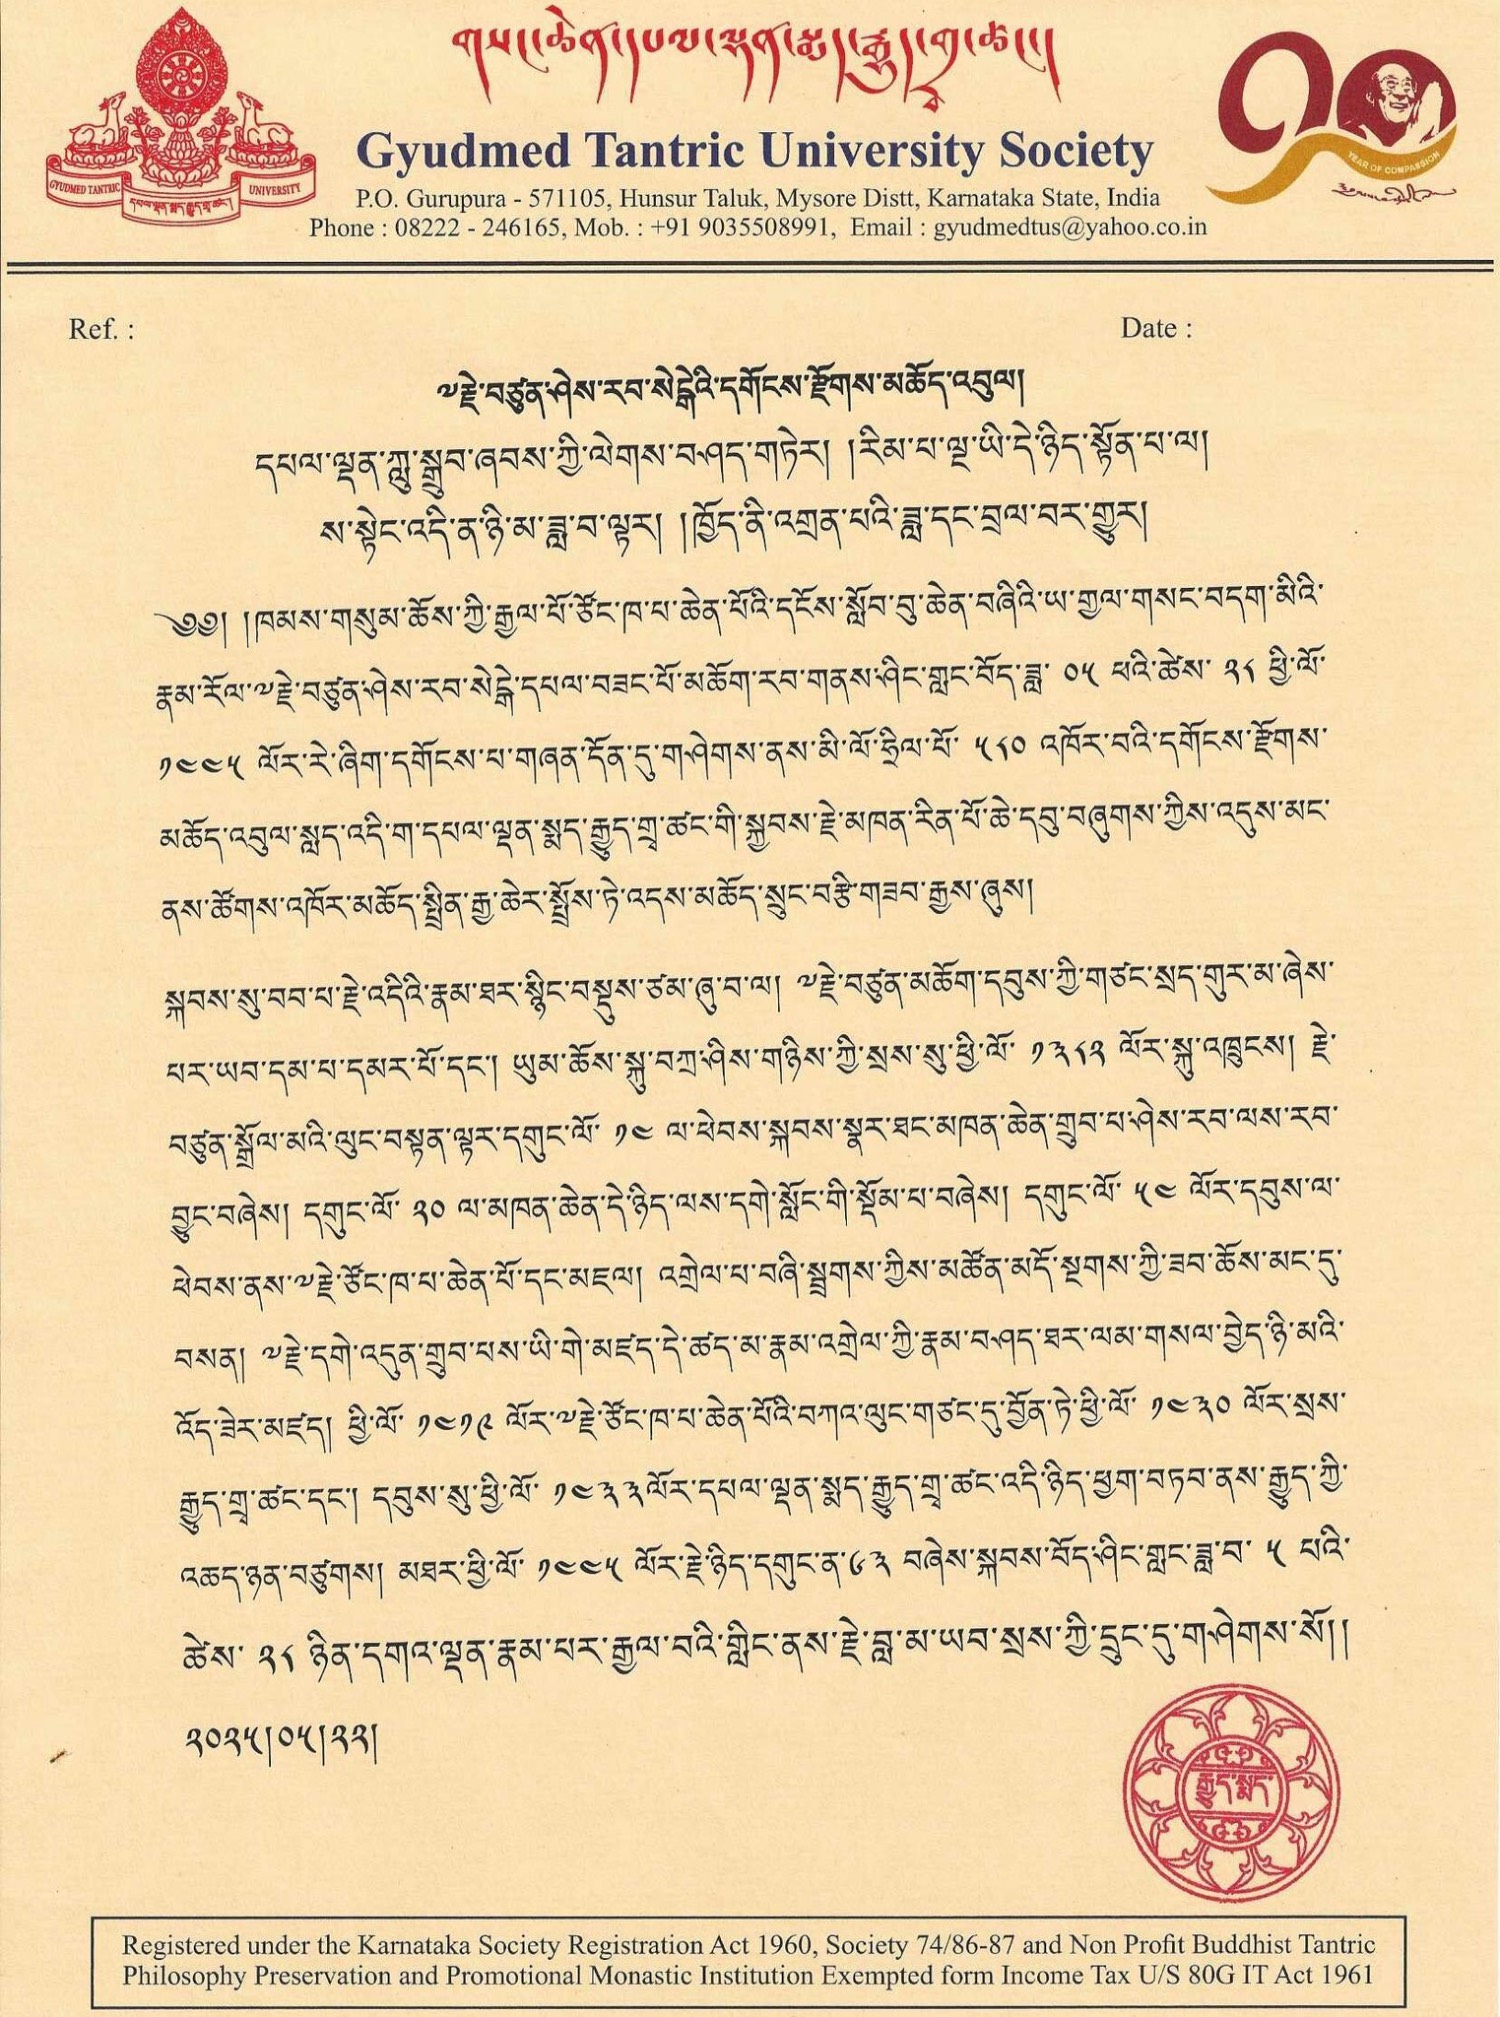 གསང་ཆེན་དཔལ་ལྡན་སྨད་རྒྱུད་གྲྭ་ཚང་།
Gyudmed Tantric University Society
P.O. Gurupura - 571105, Hunsur Taluk, Mysore Distt, Karnataka State, India
Phone : 08222 - 246165, Mob. : +91 9035508991, Email : gyudmedtus@yahoo.co.in
GYUDMED TANTRIC
UNIVERSITY
དཔལ་ལྡན་སྨད་རྒྱུད་གྲྭ་ཚང་།
90
YEAR OF COMPASSION
Ref. :
Date :
༧རྗེ་བཙུན་ཤེས་རབ་སེངྒེའི་དགོངས་རྫོགས་མཆོད་འབུལ།
དཔལ་ལྡན་ཀླུ་སྒྲུབ་ཞབས་ཀྱི་ལེགས་བཤད་གཏེར། །རིམ་པ་ལྔ་ཡི་དེ་ཉིད་སྟོན་པ་ལ།
ས་སྟེང་འདི་ན་ཉི་མ་ཟླ་བ་ལྟར། །ཁྱོད་ནི་འགྲན་པའི་ཟླ་དང་བྲལ་བར་གྱུར།
༄༅། །ཁམས་གསུམ་ཆོས་ཀྱི་རྒྱལ་པོ་ཙོང་ཁ་པ་ཆེན་པོའི་དངོས་སློབ་བུ་ཆེན་བཞིའི་ཡ་གྱལ་གསང་བདག་མིའི་
རྣམ་རོལ་༧རྗེ་བཙུན་ཤེས་རབ་སེངྒེ་དཔལ་བཟང་པོ་མཆོག་རབ་གནས་ཤིང་གླང་བོད་ཟླ་ ༠༥ པའི་ཚེས་ ༢༨ ཕྱི་ལོ་
༡༤༤༥ ལོར་རེ་ཞིག་དགོངས་པ་གཞན་དོན་དུ་གཤེགས་ནས་མི་ལོ་ཧྲིལ་པོ་ ༥༨༠ འཁོར་བའི་དགོངས་རྫོགས་
མཆོད་འབུལ་སླད་འདི་ག་དཔལ་ལྡན་སྨད་རྒྱུད་གྲྭ་ཚང་གི་སྐྱབས་རྗེ་མཁན་རིན་པོ་ཆེ་དབུ་བཞུགས་ཀྱིས་འདུས་མང་
ནས་ཚོགས་འཁོར་མཆོད་སྤྲིན་རྒྱ་ཆེར་སྤྲོས་ཏེ་འདས་མཆོད་སྲུང་བརྩི་གཟབ་རྒྱས་ཞུས།
སྐབས་སུ་བབ་པ་རྗེ་འདིའི་རྣམ་ཐར་སྙིང་བསྡུས་ཙམ་ཞུ་བ་ལ། ༧རྗེ་བཙུན་མཆོག་དབུས་ཀྱི་གཙང་སྲད་གུར་མ་ཞེས་
པར་ཡབ་དམ་པ་དམར་པོ་དང་། ཡུམ་ཆོས་སྐུ་བཀྲ་ཤིས་གཉིས་ཀྱི་སྲས་སུ་ཕྱི་ལོ་ ༡༣༨༢ ལོར་སྐུ་འཁྲུངས། རྗེ་
བཙུན་སྒྲོལ་མའི་ལུང་བསྟན་ལྟར་དགུང་ལོ་ ༡༤ ལ་ཕེབས་སྐབས་སྣར་ཐང་མཁན་ཆེན་གྲུབ་པ་ཤེས་རབ་ལས་རབ་
བྱུང་བཞེས། དགུང་ལོ་ ༢༠ ལ་མཁན་ཆེན་དེ་ཉིད་ལས་དགེ་སློང་གི་སྡོམ་པ་བཞེས། དགུང་ལོ་ ༥༤ ལོར་དབུས་ལ་
ཕེབས་ནས་༧རྗེ་ཙོང་ཁ་པ་ཆེན་པོ་དང་མཇལ། འགྲེལ་པ་བཞི་སྦྲགས་ཀྱིས་མཚོན་མདོ་སྔགས་ཀྱི་ཟབ་ཆོས་མང་དུ་
བསན། ༧རྗེ་དགེ་འདུན་གྲུབ་པས་ཡི་གེ་མཛད་དེ་ཚད་མ་རྣམ་འགྲེལ་ཀྱི་རྣམ་བཤད་ཐར་ལམ་གསལ་བྱེད་ཉི་མའི་
འོད་ཟེར་མཛད། ཕྱི་ལོ་ ༡༤༡༩ ལོར་༧རྗེ་ཙོང་ཁ་པ་ཆེན་པོའི་བཀའ་ལུང་གཙང་དུ་བྱོན་ཏེ་ཕྱི་ལོ་ ༡༤༣༠ ལོར་སྲས་
རྒྱུད་གྲྭ་ཚང་དང་། དབུས་སུ་ཕྱི་ལོ་ ༡༤༣༣ལོར་དཔལ་ལྡན་སྨད་རྒྱུད་གྲྭ་ཚང་འདི་ཉིད་ཕྱག་བཏབ་ནས་རྒྱུད་ཀྱི་
འཆད་ཉན་བཙུགས། མཐར་ཕྱི་ལོ་ ༡༤༤༥ ལོར་རྗེ་ཉིད་དགུང་ན་༦༣ བཞེས་སྐབས་བོད་ཤིང་གླང་ཟླ་བ་ ༥ པའི་
ཚེས་ ༢༨ ཉིན་དགའ་ལྡན་རྣམ་པར་རྒྱལ་བའི་གླིང་ནས་རྗེ་བླ་མ་ཡབ་སྲས་ཀྱི་དྲུང་དུ་གཤེགས་སོ།།
༢༠༢༥།༠༥།༢༢།
རྒྱུད་སྨད་
Registered under the Karnataka Society Registration Act 1960, Society 74/86-87 and Non Profit Buddhist Tantric
Philosophy Preservation and Promotional Monastic Institution Exempted form Income Tax U/S 80G IT Act 1961